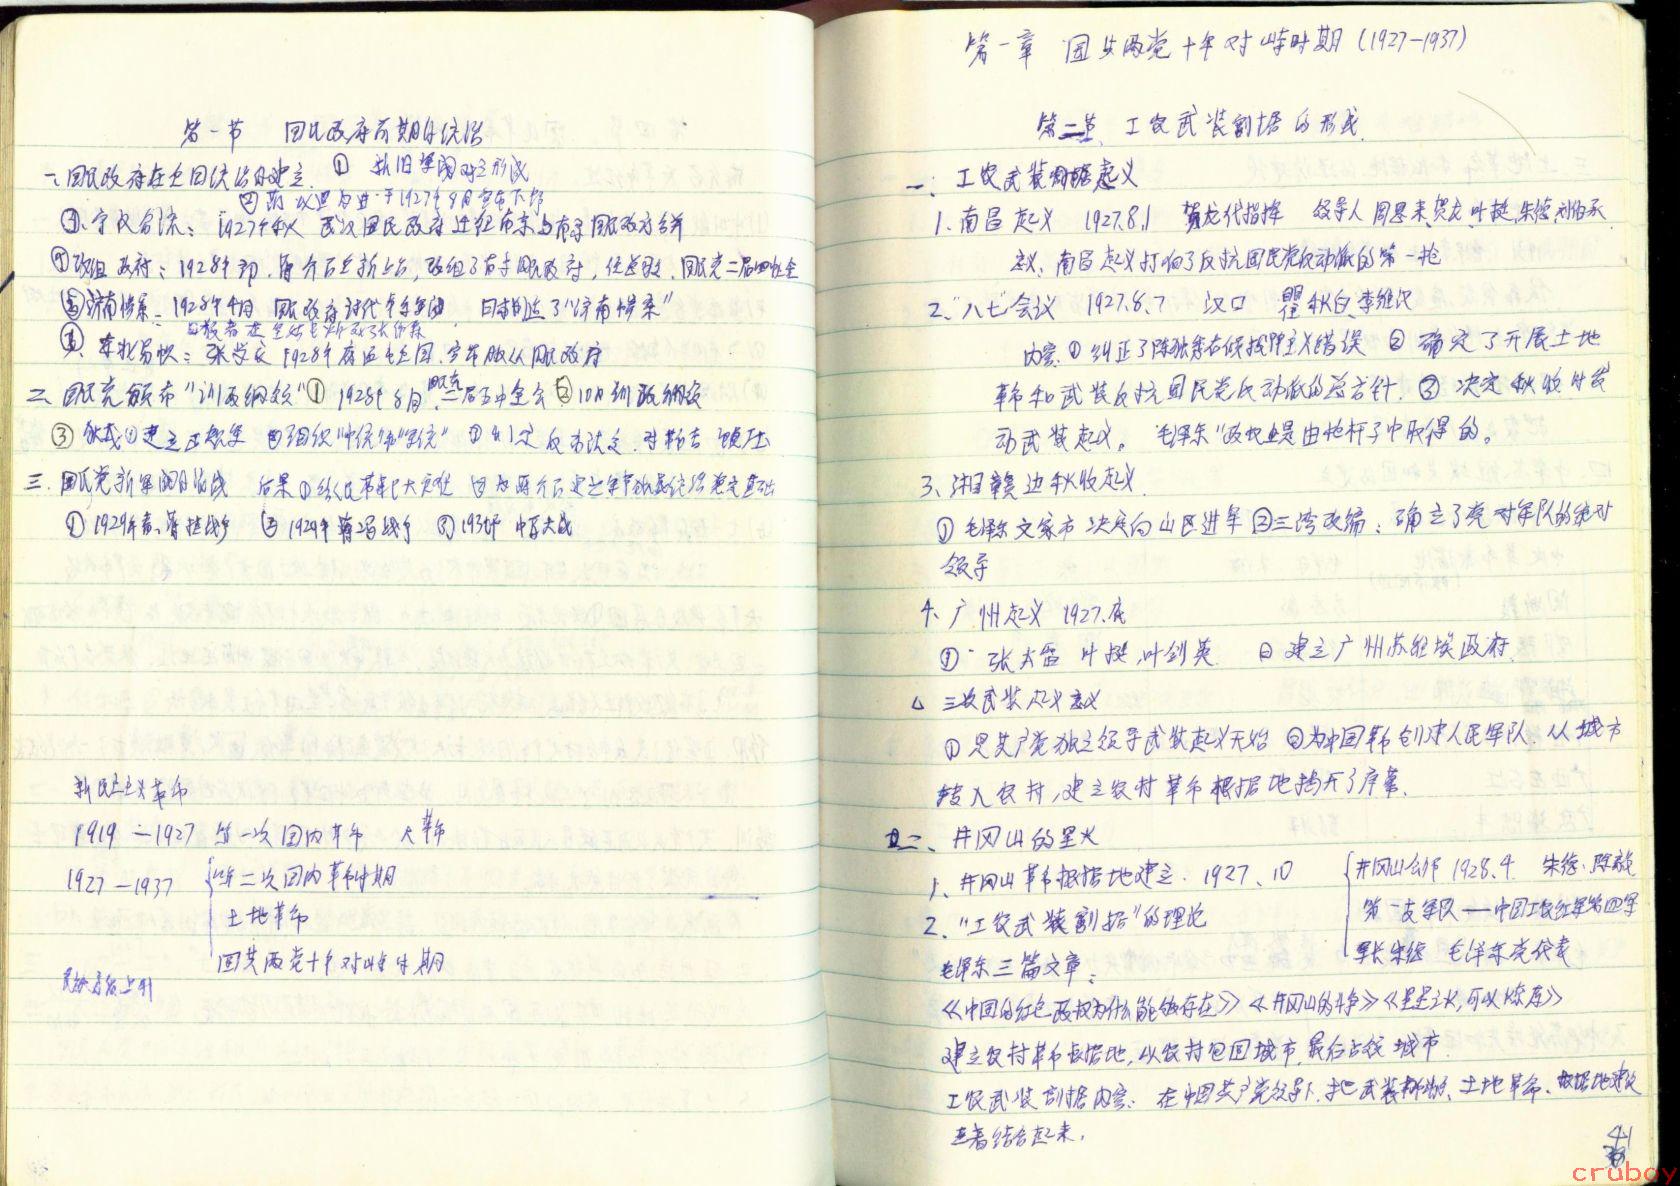 第一节 国民政府前期的统治
一、国民政府在全国统治的建立 ① 新旧军阀对立形成
于1927年8月宣布下野
③ 宁汉合流：1927年秋 武汉国民政府迁往南京与南京国民政府合并
④ 改组政府：1928年初，蒋介石重新上台，改组了南京国民政府，任总司令，国民党二届四中全会
⑤ 济南惨案：1928年4月 国民政府讨伐奉系军阀，日本制造了“济南惨案”
⑥ 东北易帜：张学良1928年底通电全国，宣布服从国民政府
二、国民党颁布“训政纲领”① 1928年8月，国民党二届五中全会 ② 10月 训政纲领
③ ①建立正规军 ②组织“中统”和“军统” ③制定反动法令，
三、国民党新军阀的混战 后果 ①给人民带来巨大灾难 ②为蒋介石建立军事独裁统治奠定基础
① 1929年春，蒋桂战争 ② 1929年蒋冯战争 ③ 1930年 中原大战
新民主主义革命
1919—1927 第一次国内革命 大革命
1927—1937 第二次国内革命时期
土地革命
国共两党十年对峙时期
第一章 国共两党十年对峙时期(1927—1937)
第二节 工农武装割据的形成
一、工农武装割据起义
1、南昌起义 1927.8.1 贺龙代指挥 领导人 周恩来、贺龙、叶挺、朱德、刘伯承
意义、南昌起义打响了反抗国民党反动派的第一枪
2、“八七”会议 1927.8.7 汉口 瞿秋白、李维汉
内容、①纠正了陈独秀右倾投降主义错误 ②确定了开展土地
革命和武装反抗国民党反动派的总方针，③决定秋收时发
动武装起义。毛泽东“政权是由枪杆子中取得的。
3、湘赣边秋收起义
①毛泽东文家市决定向山区进军 ②三湾改编：确立了党对军队的绝对
领导
4、广州起义 1927.底
① 张太雷 叶挺，叶剑英 ②建立广州苏维埃政府
△ 三次武装起义意义
①是共产党独立领导武装起义开始 ②为中国革命创建人民军队，从城市
转入农村，建立农村革命根据地揭开了序幕.
二、井冈山的星火
1、井冈山革命根据地建立. 1927.10
井冈山会师 1928.4 朱德、陈毅
2、“工农武装割据”的理论
第一支军队——中国工农红军第四军
军长朱德 毛泽东党代表
毛泽东三篇文章：
《中国的红色政权为什么能够存在》《井冈山的斗争》《星星之火，可以燎原》
建立农村革命根据地，以农村包围城市，最后占领城市.
工农武装割据内容：在中国共产党领导下，把武装斗争、土地革命、根据地建设
三者结合起来.
41
cruboy